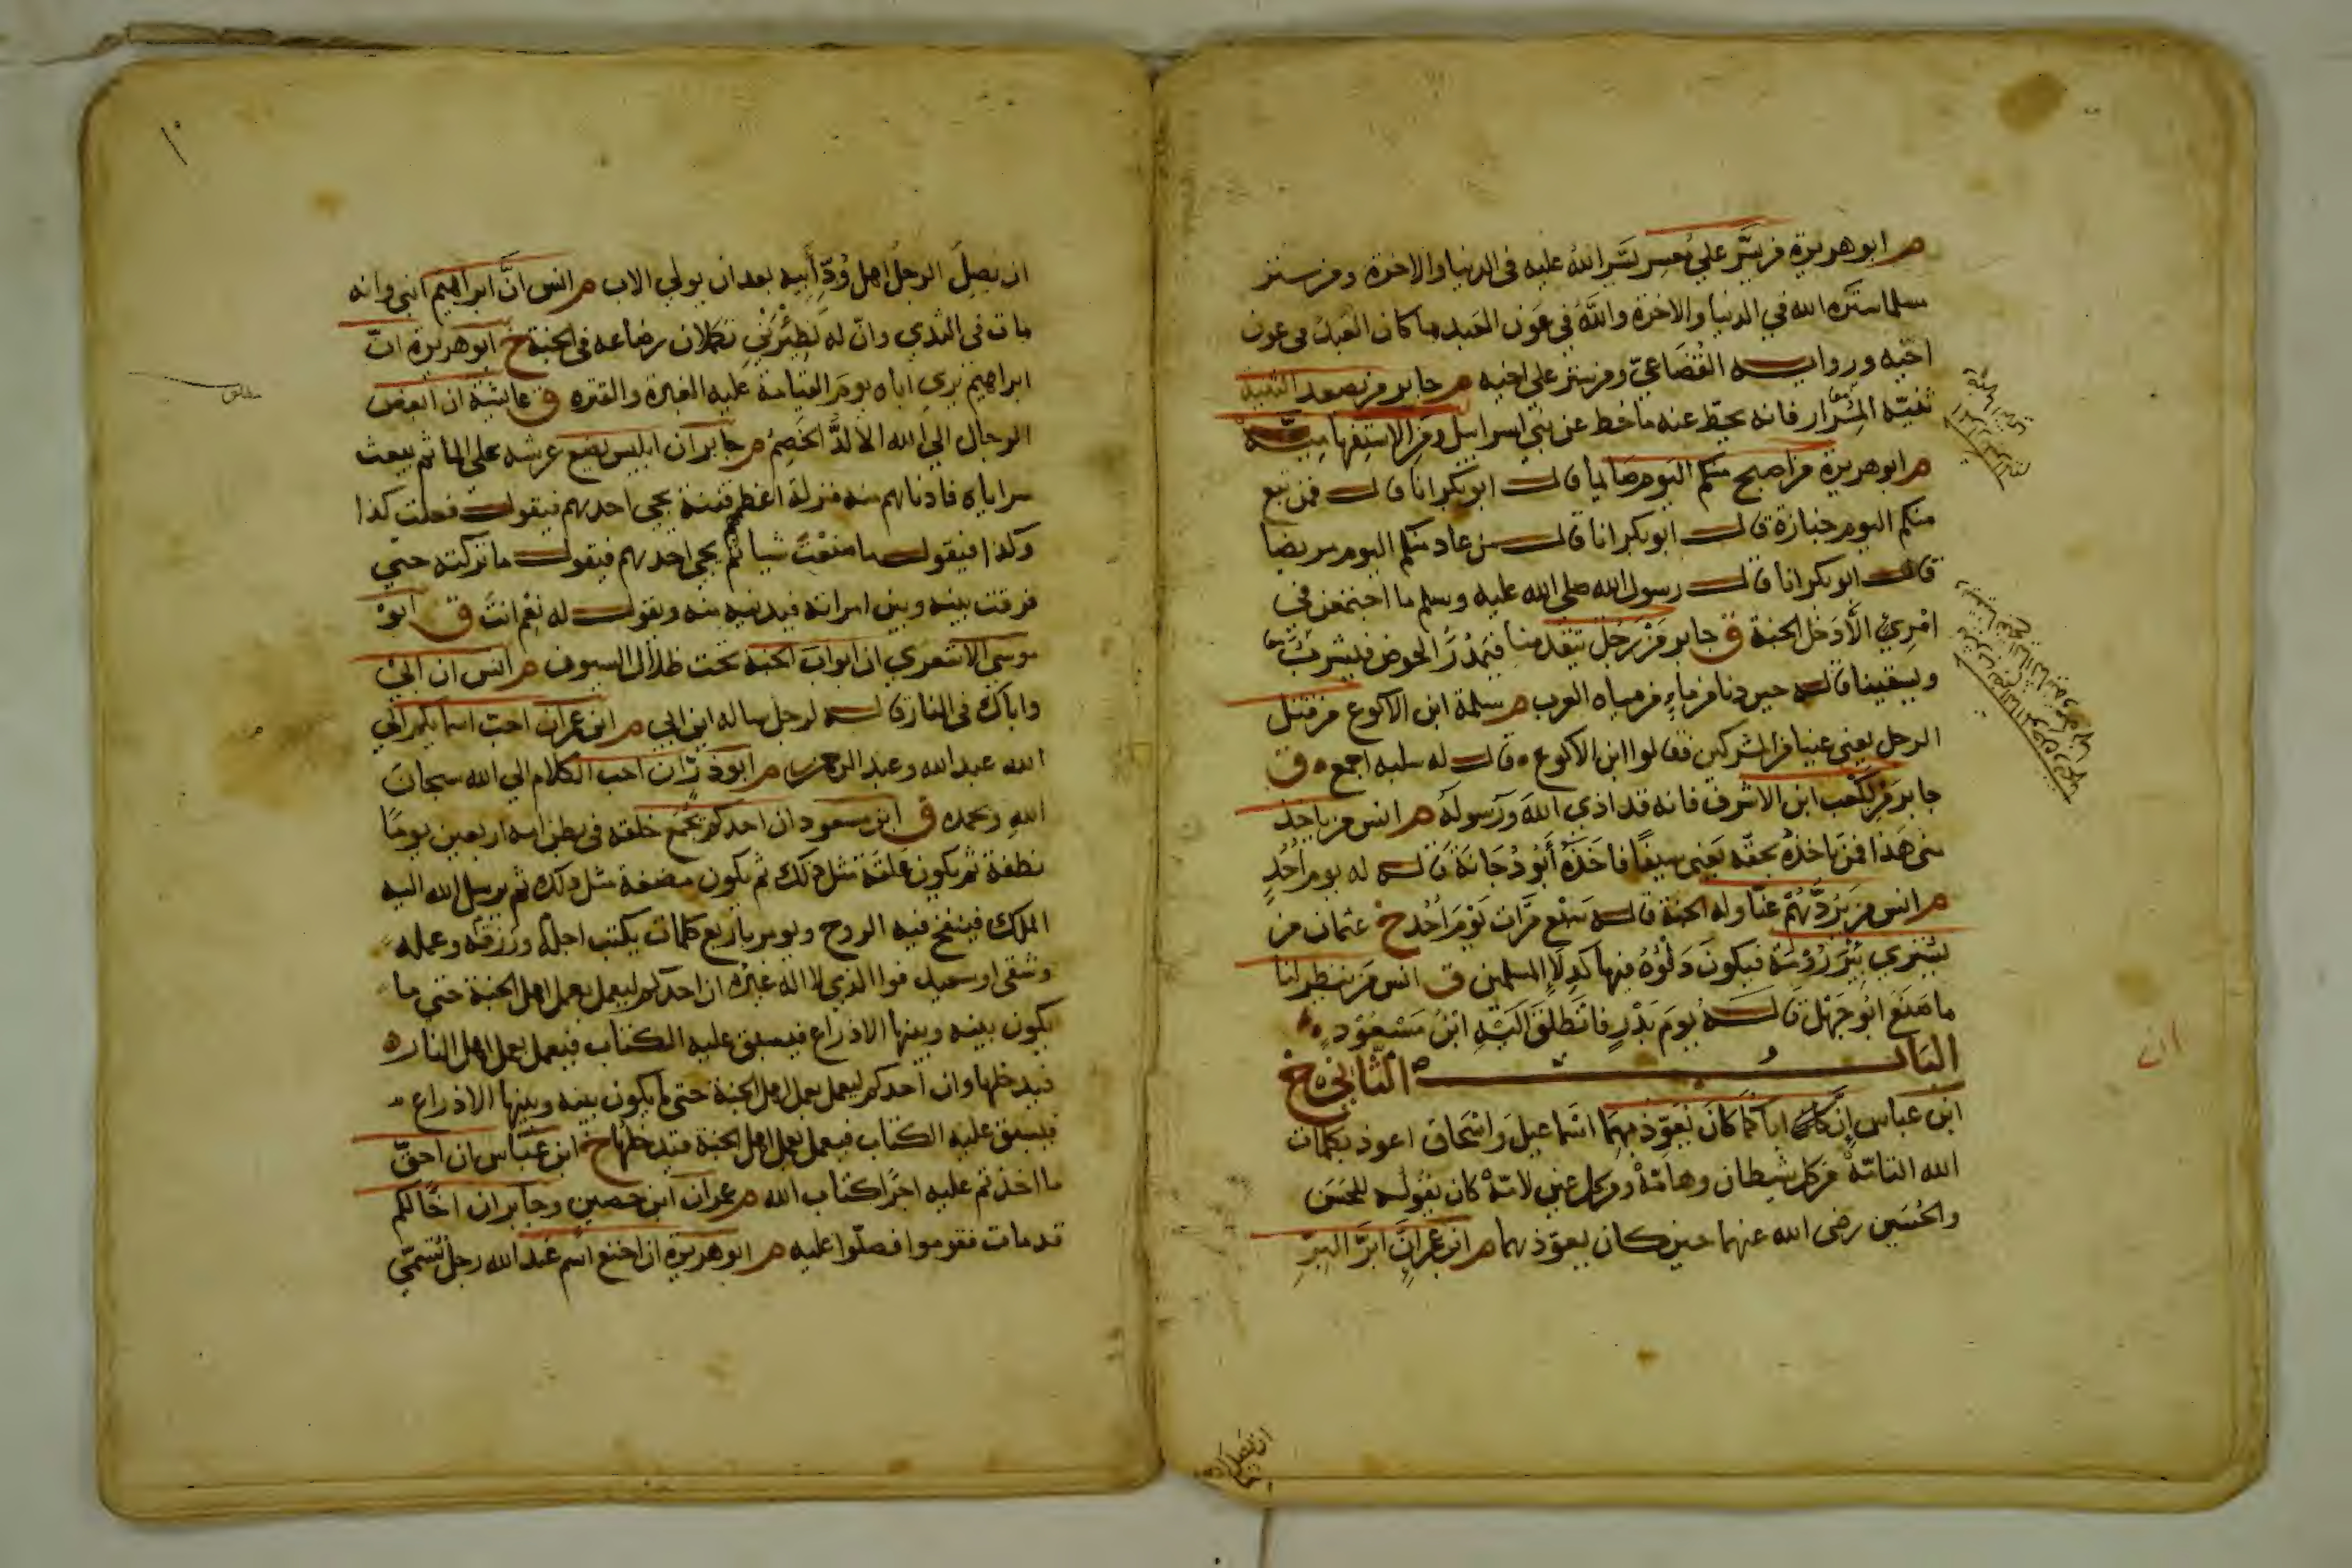 م ابو هريرة من يسّر علي معسر يسّر الله عليه في الدنيا والاخرة ومن ستر
مسلما ستره الله في الدنيا والاخرة والله في عون العبد ما كان العبد في عون
اخيه ورواية القضاعيّ ومن ستر علي اخيه م جابر من يصعد الثنية
ثنيّة المرار فانه يحطّ عنه ما حط عن بني اسرايل ومن الاستفهاميّة
م ابو هريرة من اصبح منكم اليوم صايما قال ابو بكر انا قال فمن تبع
منكم اليوم جنازة قال ابو بكر انا قال من عاد منكم اليوم مريضا
قال ابو بكر انا قال رسول الله صلي الله عليه وسلم ما اجتمعن في
امرئ الّا دخل الجنة ق جابر من رجل يتقدمنا فيمدر الحوض فيشرب
ويسقينا قاله حين دنا من ماء من مياه العرب م سلمة ابن الاكوع من قتل
الرجل يعني عينا من المشركين فقالوا ابن الاكوع قال له سلبه اجمع ق
جابر من لكعب ابن الاشرف فانه قد اذي الله ورسوله م انس من ياخذ
مني هذا فمن ياخذه بحقه يعني سيفا فاخذه ابو دجانة قاله له يوم احد
م انس من يردّهم عنّا وله الجنة قاله سبع مرّات يوم احد خ عثمان من
يشتري بئر رومة فيكون دلوه فيها كدلاء المسلمين ق انس من ينظر لنا
ما صنع ابو جهل قاله يوم بدر فانطلق اليه ابن مسعود
الباب الثاني خ
ابن عباس إنّ اباكما كان يعوّذ بهما اسماعيل واسحاق اعوذ بكلمات
الله التامّة من كل شيطان وهامّة ومن كل عين لامّة كان يقوله للحسن
والحسين رضي الله عنهما حين كان يعوّذ بهما م ابن عمر ان ابرّ البرّ
ان يصل
ان يصل الرجل اهل ودّ أبيه بعد ان يولي الاب م انس انّ ابراهيم ابني وانه
مات في الثدي وانّ له لظئرين تكملان رضاعه في الجنة خ ابو هريرة انّ
ابراهيم يري اباه يوم القيامة عليه الغبرة والقترة ق عائشة ان ابغض
الرجال الي الله الالدّ الخصم م جابر ان ابليس يضع عرشه علي الماء ثم يبعث
سراياه فادناهم منه منزلة اعظم فتنة يجي احدهم فيقول فعلت كذا
وكذا فيقول ما صنعت شيا ثم يجي احدهم فيقول ما تركته حتي
فرقت بينه وبين امراته فيدنيه منه ويقول له نعم انت ق ابو
موسي الاشعري ان ابواب الجنة تحت ظلال السيوف م انس ان ابي
واباك في النار قاله لرجل ساله اين ابي م ابن عمر ان احب اسمايكم الي
الله عبد الله وعبد الرحمن م ابو ذرّ ان احب الكلام الي الله سبحان
الله وبحمده ق ابن مسعود ان احدكم يجمع خلقه في بطن امه اربعين يوما
نطفة ثم يكون علقة مثل ذلك ثم يكون مضغة مثل ذلك ثم يرسل الله اليه
الملك فينفخ فيه الروح ويومر باربع كلمات يكتب اجله ورزقه وعمله
وشقي او سعيد فوا الذي لا اله غيره ان احدكم ليعمل بعمل اهل الجنة حتي ما
يكون بينه وبينها الا ذراع فيسبق عليه الكتاب فيعمل بعمل اهل النار
فيدخلها وان احدكم ليعمل بعمل اهل الجنة حتي ما يكون بينه وبينها الا ذراع
فيسبق عليه الكتاب فيعمل بعمل اهل الجنة فيدخلها خ ابن عبّاس ان احقّ
ما اخذتم عليه اجرا كتاب الله م عمران ابن حصين وجابر ان اخا لكم
قد مات فقوموا فصلّوا عليه م ابو هريرة ان اخنع اسم عند الله رجل تسمّي